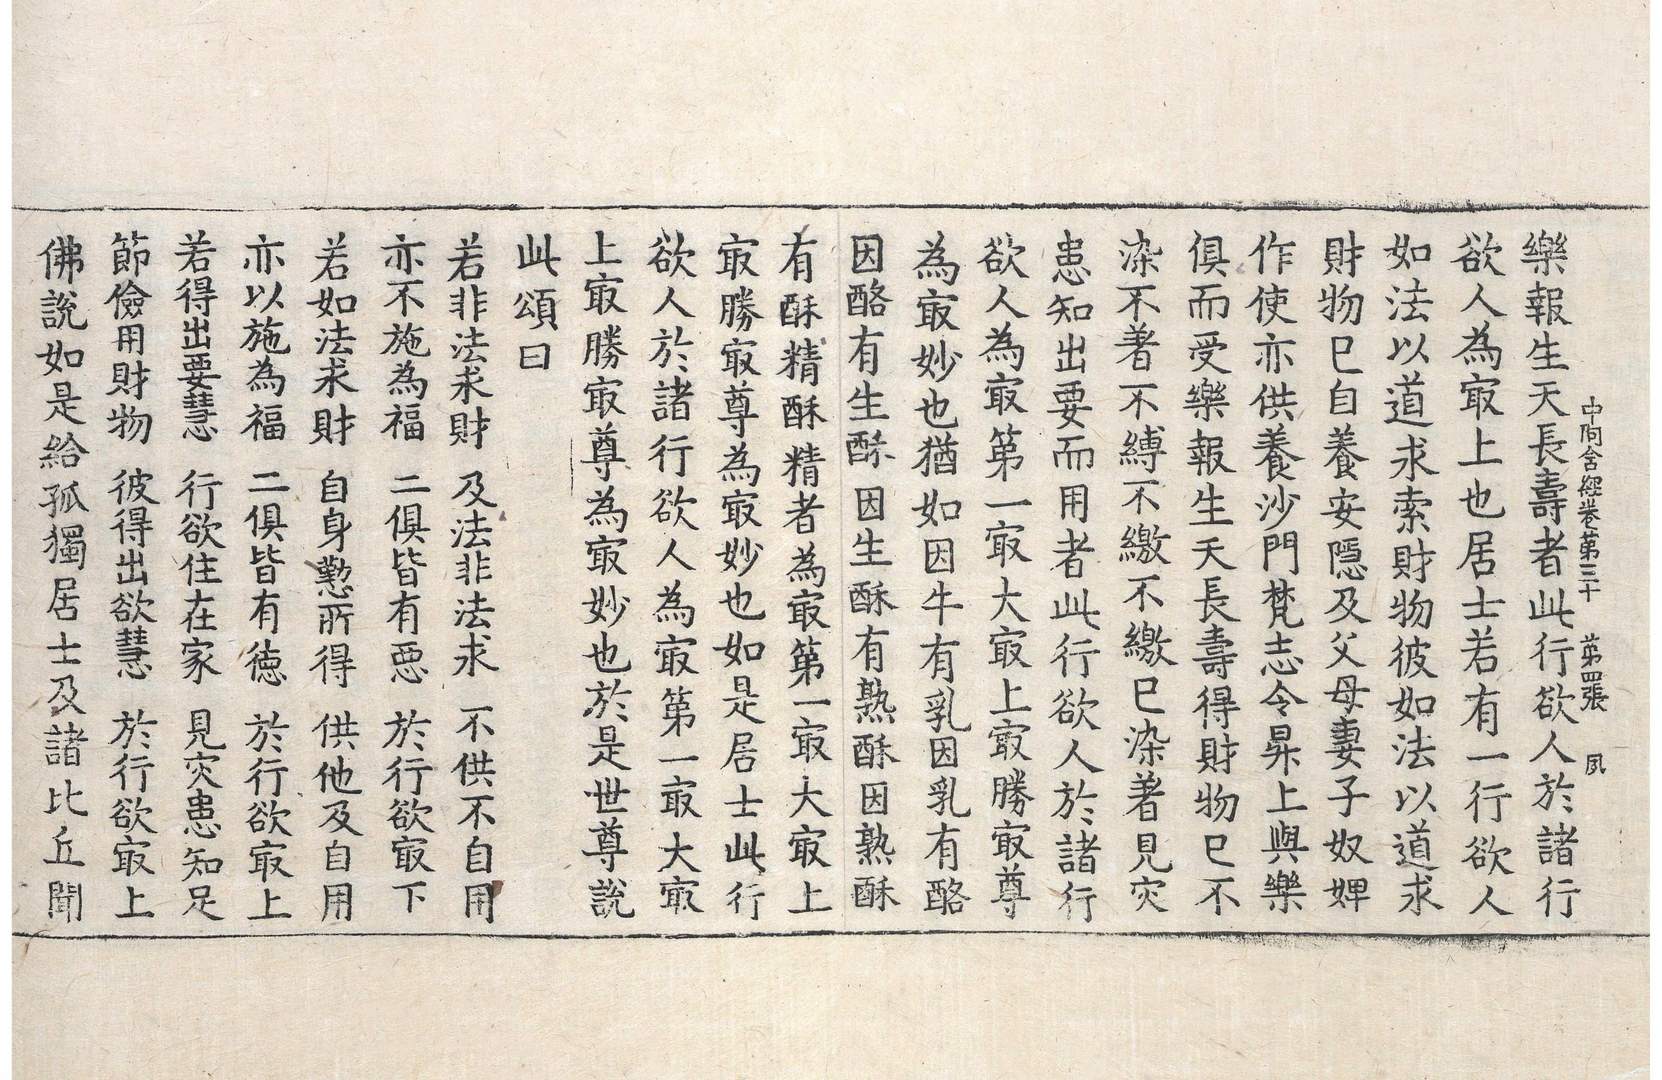 中阿含經卷第三十　第四張　夙
樂報生天長壽者此行欲人於諸行
欲人為㝡上也居士若有一行欲人
如法以道求索財物彼如法以道求
財物已自養安隱及父母妻子奴婢
作使亦供養沙門梵志令昇上與樂
俱而受樂報生天長壽得財物已不
染不著不縛不繳不繳已染著見灾
患知出要而用者此行欲人於諸行
欲人為㝡第一㝡大㝡上㝡勝㝡尊
為㝡妙也猶如因牛有乳因乳有酪
因酪有生酥因生酥有熟酥因熟酥
有酥精酥精者為㝡第一㝡大㝡上
㝡勝㝡尊為㝡妙也如是居士此行
欲人於諸行欲人為㝡第一㝡大㝡
上㝡勝㝡尊為㝡妙也於是世尊說
此頌曰
若非法求財　及法非法求　不供不自用
亦不施為福　二俱皆有惡　於行欲㝡下
若如法求財　自身懃所得　供他及自用
亦以施為福　二俱皆有德　於行欲㝡上
若得出要慧　行欲住在家　見灾患知足
節儉用財物　彼得出欲慧　於行欲㝡上
佛說如是給孤獨居士及諸比丘聞